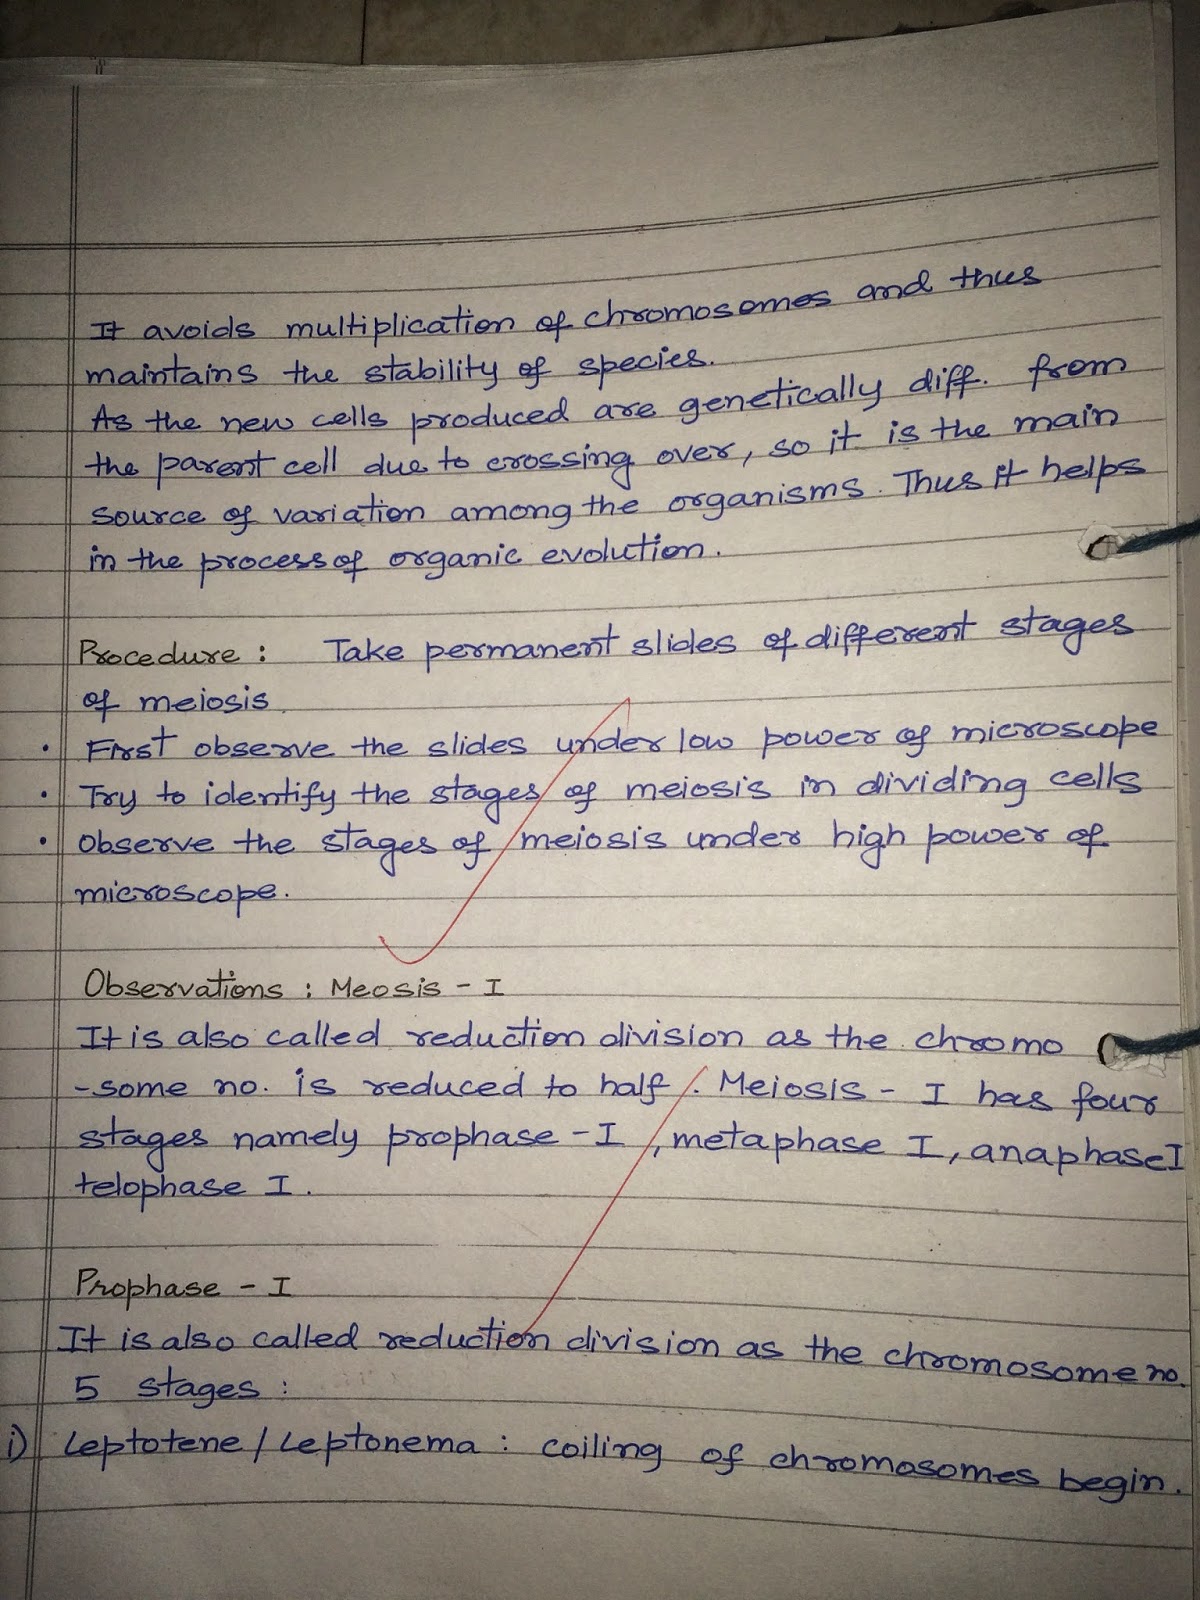 It avoids multiplication of chromosomes and thus
maintains the stability of species.
As the new cells produced are genetically diff. from
the parent cell due to crossing over, so it is the main
source of variation among the organisms. Thus it helps
in the process of organic evolution.
Procedure : Take permanent slides of different stages
of meiosis.
• First observe the slides under low power of microscope
• Try to identify the stages of meiosis in dividing cells
• Observe the stages of meiosis under high power of
microscope.
Observations : Meosis - I
It is also called reduction division as the chromo
-some no. is reduced to half. Meiosis - I has four
stages namely prophase - I, metaphase I, anaphase I
telophase I.
Prophase - I
It is also called reduction division as the chromosome no.
5 stages :
i) Leptotene / Leptonema : coiling of chromosomes begin.